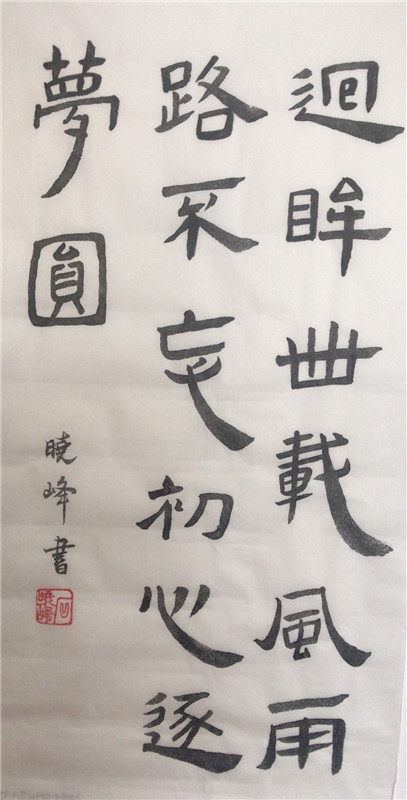 迴眸丗載風雨
路不忘初心逐
夢圓
曉峰書